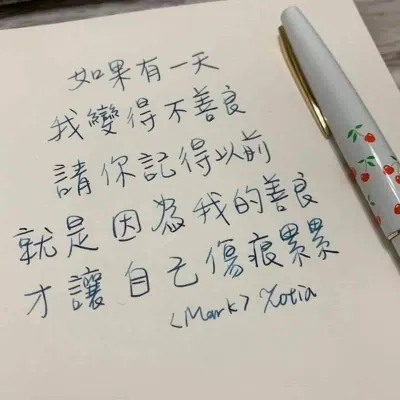 如果有一天
我變得不善良
請你記得以前
就是因為我的善良
才讓自己傷痕累累
<Mark> Xotia